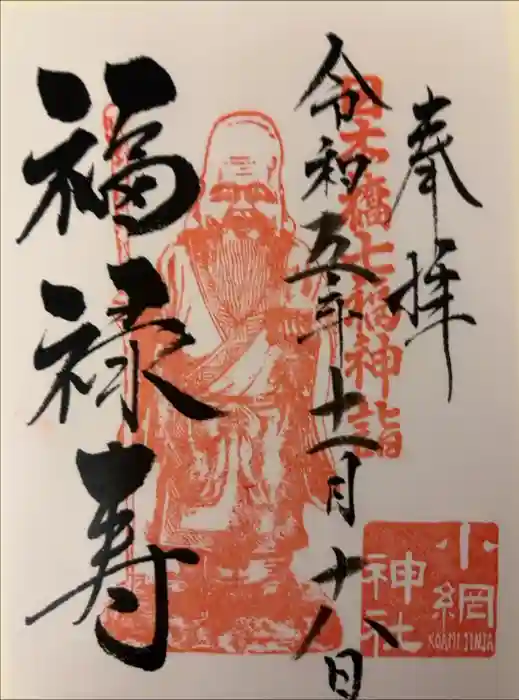 奉拝
日本橋七福神詣
令和五年十一月十八日
福禄寿
小網
神社
KOAMI JINJA